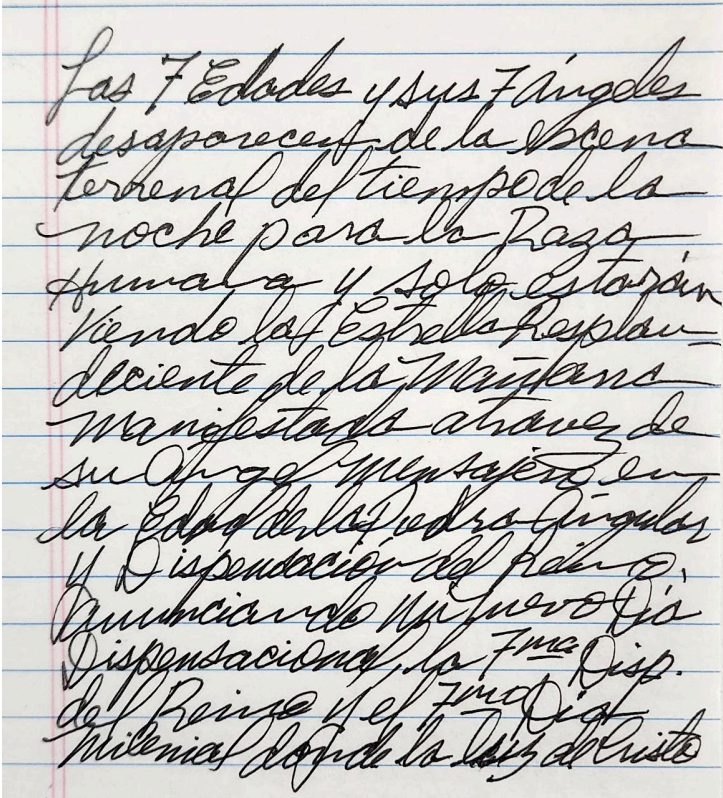 Las 7 Edades y sus 7 Ángeles
desaparecen de la escena
terrenal del tiempo de la
noche para la Raza
Humana y solo estarán
viendo la Estrella Resplan-
deciente de la Mañana
manifestada atravez de
su Angel Mensajero en
la Edad de la Piedra Angular
y Dispensación del Reino,
anunciando un nuevo Día
Dispensacional, la 7ma Disp.
del Reino y el 7mo Dia
Milenial donde la luz de Cristo